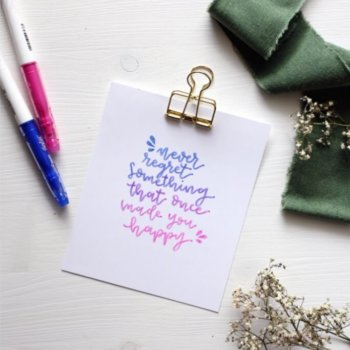 never
regret
something
that once
made you
happy